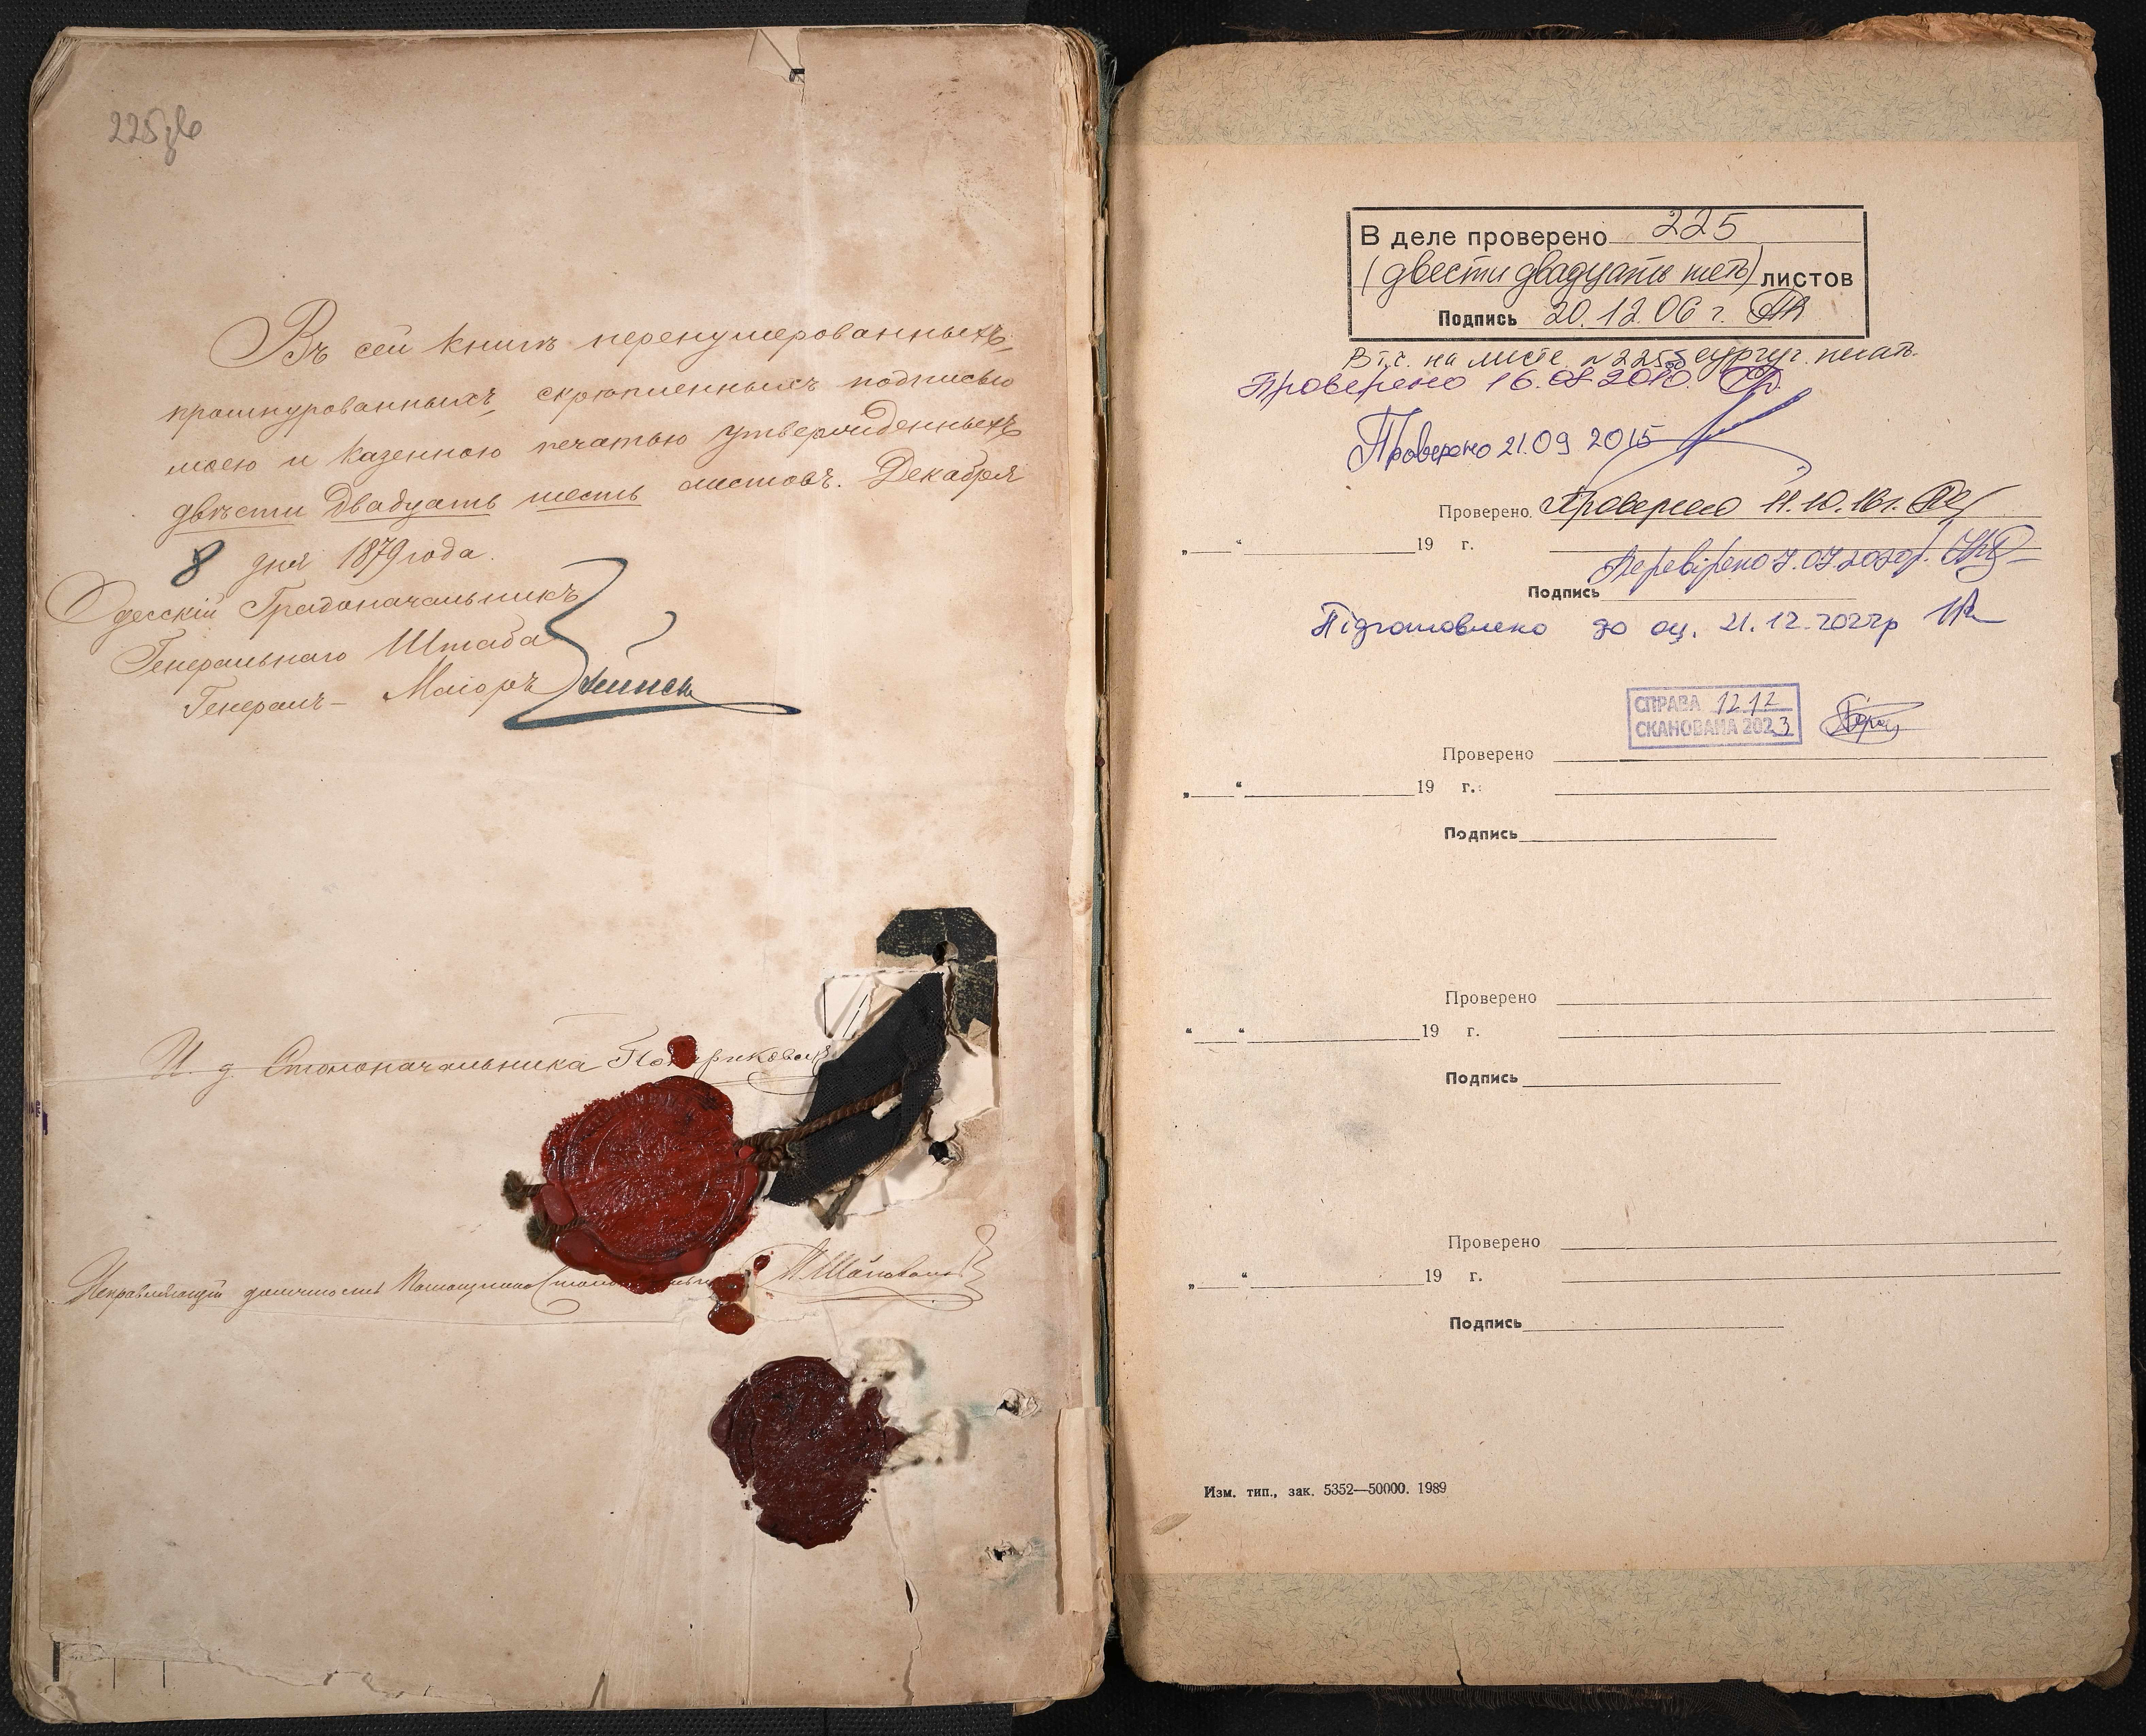 225зв
Въ сей книгѣ перенумерованныхъ,
прошнурованныхъ, скрѣпленныхъ подписью
моею и казенною печатью утвержденныхъ
двѣсти двадцать шесть листовъ. Декабря
8 дня 1879 года.
Одесскій Градоначальникъ
Генеральнаго Штаба
Генералъ-Маіоръ
И. д. Столоначальника
Исправляющій должность Помощника
В деле проверено 225
(двести двадцать пять) листов
Подпись 20.12.06 г.
В т.ч. на листе №225 сургуч. печать.
Проверено 16.08.2010.
Проверено 21.09 2015
Проверено Проверено 11.10.16г.
„ “ 19 г.
Перевірено 7.07.2020р.
Подпись
Підготовлено до оц. 21.12.2022р
СПРАВА 1212
СКАНОВАНА 2023
Проверено
„ “ 19 г.
Подпись
Проверено
“ “ 19 г.
Подпись
Проверено
„ “ 19 г.
Подпись
Изм. тип., зак. 5352—50000. 1989